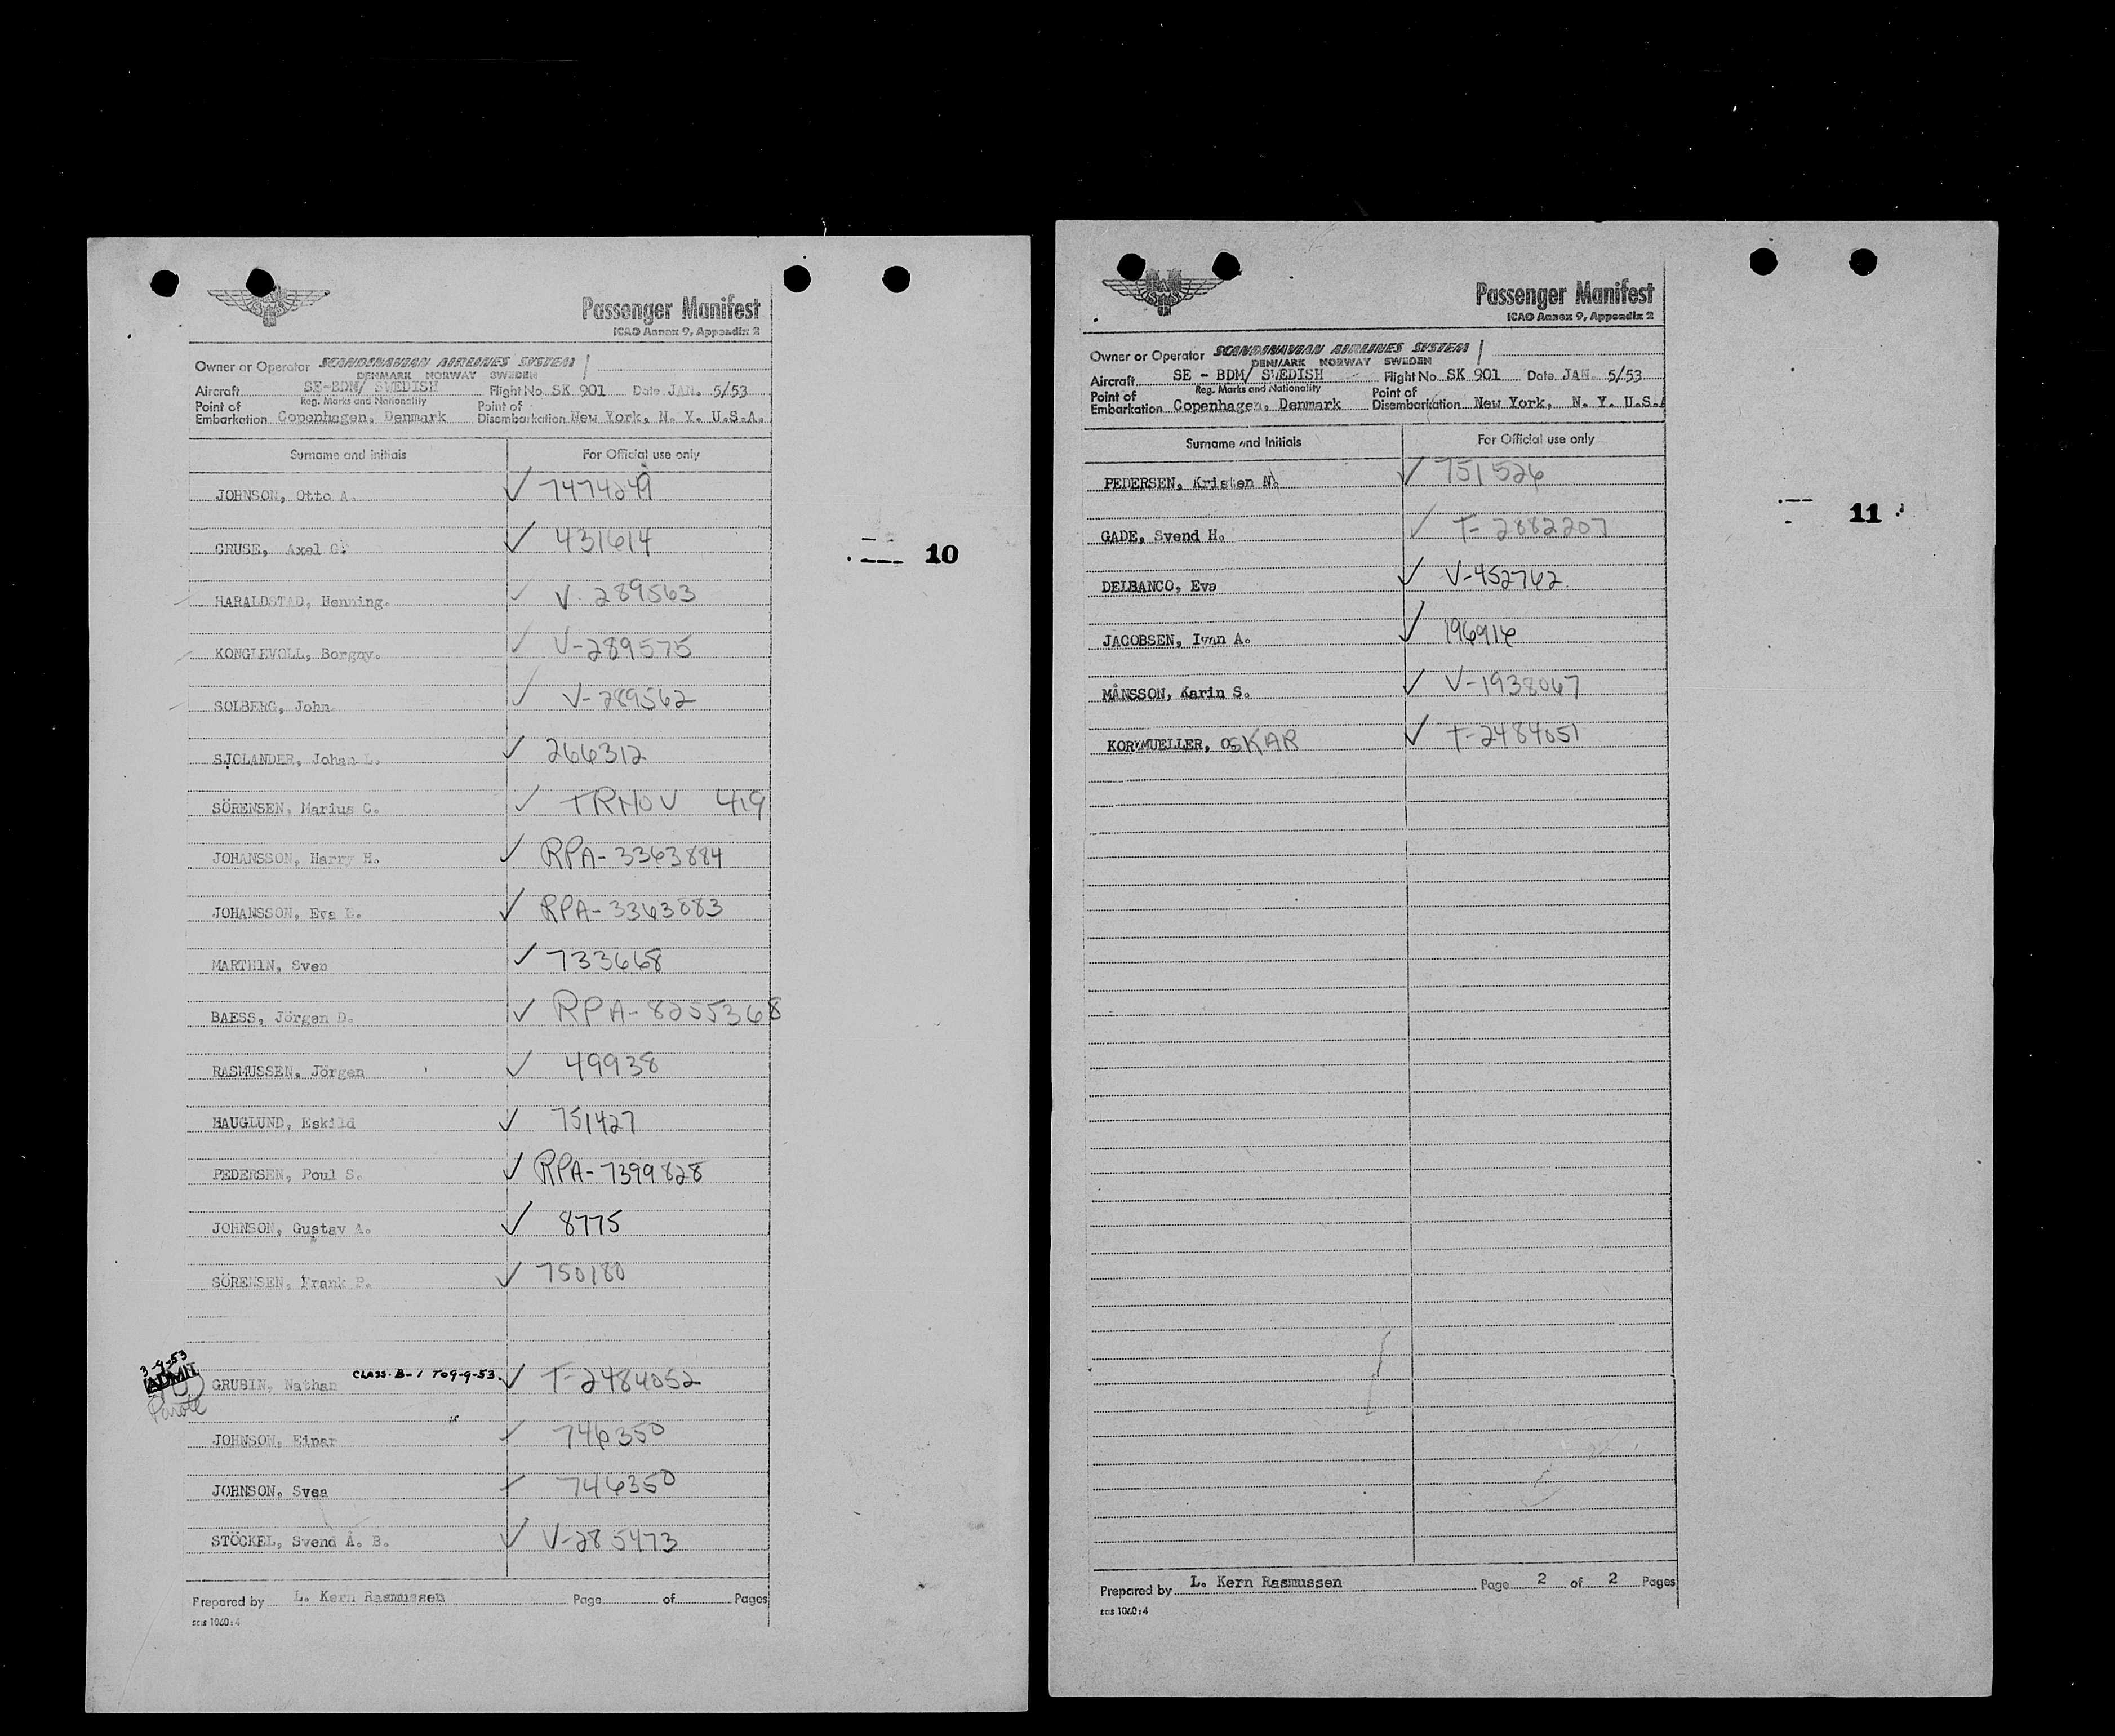 Passenger Manifest
ICAO Annex 9, Appendix 2
Owner or Operator SCANDINAVIAN AIRLINES SYSTEM
DENMARK NORWAY SWEDEN
Aircraft SE-BDM/ SWEDISH Flight No SK 901 Date JAN. 5/53
Reg. Marks and Nationality
Point of Embarkation Copenhagen, Denmark Point of Disembarkation New York, N. Y. U.S.A.
Surname and initials For Official use only
JOHNSON, Otto A. ✓ 7474249
CRUSE, Axel C. ✓ 431614
10
HARALDSTAD, Henning. ✓ V-289563
KONGLEVOLL, Borgny. ✓ V-289575
SOLBERG, John ✓ V-289562
SJOLANDER, Johan L. ✓ 266312
SÖRENSEN, Marius C. ✓ 419
JOHANSSON, Harry H. ✓ RPA-3363884
JOHANSSON, Eva L. ✓ RPA-3363883
MARTHIN, Sven ✓ 733668
BAESS, Jörgen D. ✓ RPA-8255368
RASMUSSEN, Jörgen ✓ 49938
HAUGLUND, Eskild ✓ 751427
PEDERSEN, Poul S. ✓ RPA-7399828
JOHNSON, Gustav A. ✓ 8775
SÖRENSEN, Frank P. ✓ 750180
3-9-53
ADMIT
GRUBIN, Nathan CLASS-B-1 TO 9-9-53 ✓ T-2484052
Parole
JOHNSON, Einar ✓ 746350
JOHNSON, Svea ✓ 746350
STÖCKEL, Svend A. B. ✓ V-285473
Prepared by L. Kern Rasmussen Page of Pages
sas 1060:4
Passenger Manifest
ICAO Annex 9, Appendix 2
Owner or Operator SCANDINAVIAN AIRLINES SYSTEM
DENMARK NORWAY SWEDEN
Aircraft SE - BDM/ SWEDISH Flight No SK 901 Date JAN. 5/53
Reg. Marks and Nationality
Point of Embarkation Copenhagen, Denmark Point of Disembarkation New York, N. Y. U.S.A
Surname and Initials For Official use only
PEDERSEN, Kristen N. ✓ 751526
11
GADE, Svend H. ✓ T-2882207
DELBANCO, Eva ✓ V-952762
JACOBSEN, Ivan A. ✓ 196916
MÅNSSON, Karin S. ✓ V-1938067
KORNMUELLER, OSKAR ✓ T-2484051
Prepared by L. Kern Rasmussen Page 2 of 2 Pages
sas 1060:4